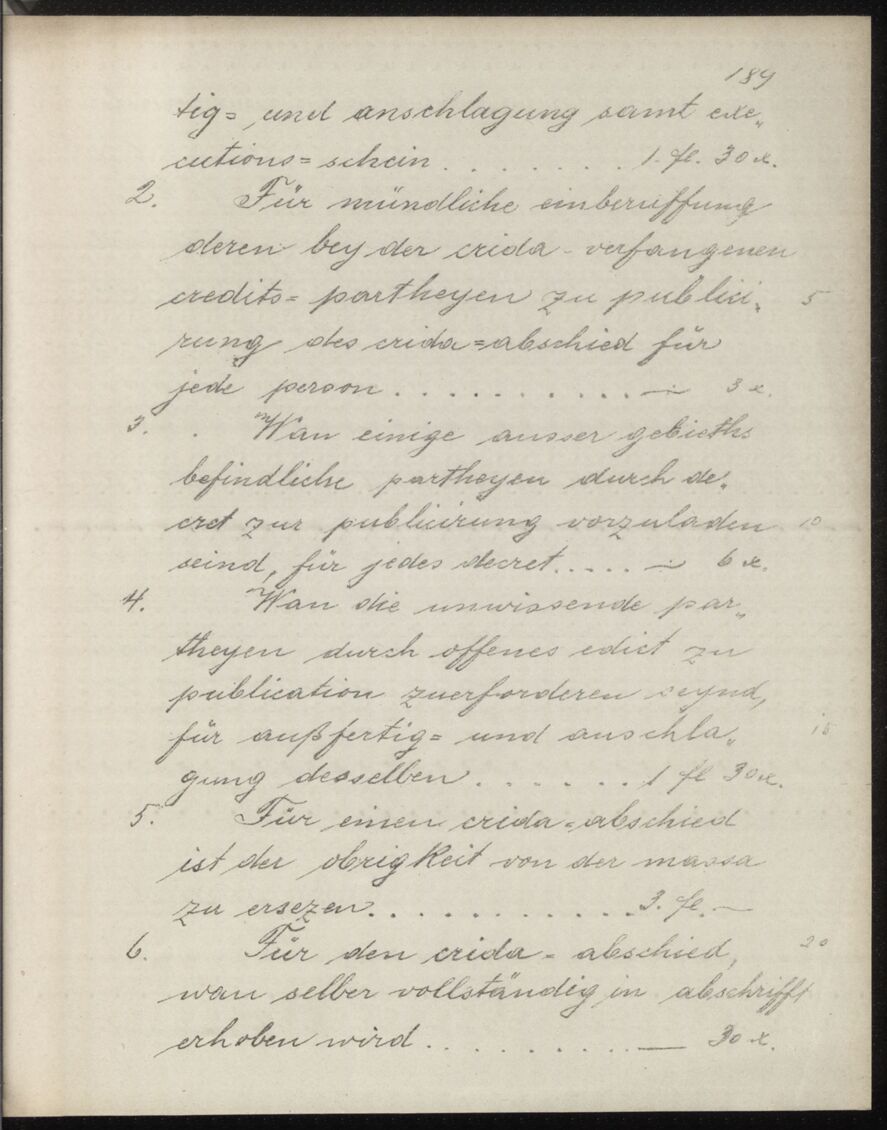 189
tig= und anschlagung samt exe„
cutions= schein . . . . . . . 1. fl. 30 x.
2. Für mündliche einberuffung
deren bey der crida verfangenen
credits= partheyen zu publici„ 5
rung des crida=abschied für
jede person . . . . . . . . . . . — 3 x.
3. Wan einige ausser gebieths
befindliche partheyen durch de„
cret zur publicirung vorzuladen 10
seind, für jedes decret . . . . . — 6 x.
4. Wan die unwissende par„
theyen durch offenes edict zu
publication zuerforderen seynd,
für außfertig= und anschla„ 15
gung desselben . . . . . . 1 fl 30 x.
5. Für einen crida=abschied
ist der obrigkeit von der massa
zu ersezen . . . . . . . . . . . . 3. fl. —
6. Für den crida= abschied, 20
wan selber vollständig in abschrifft
erhoben wird . . . . . . . . . — 30 x.